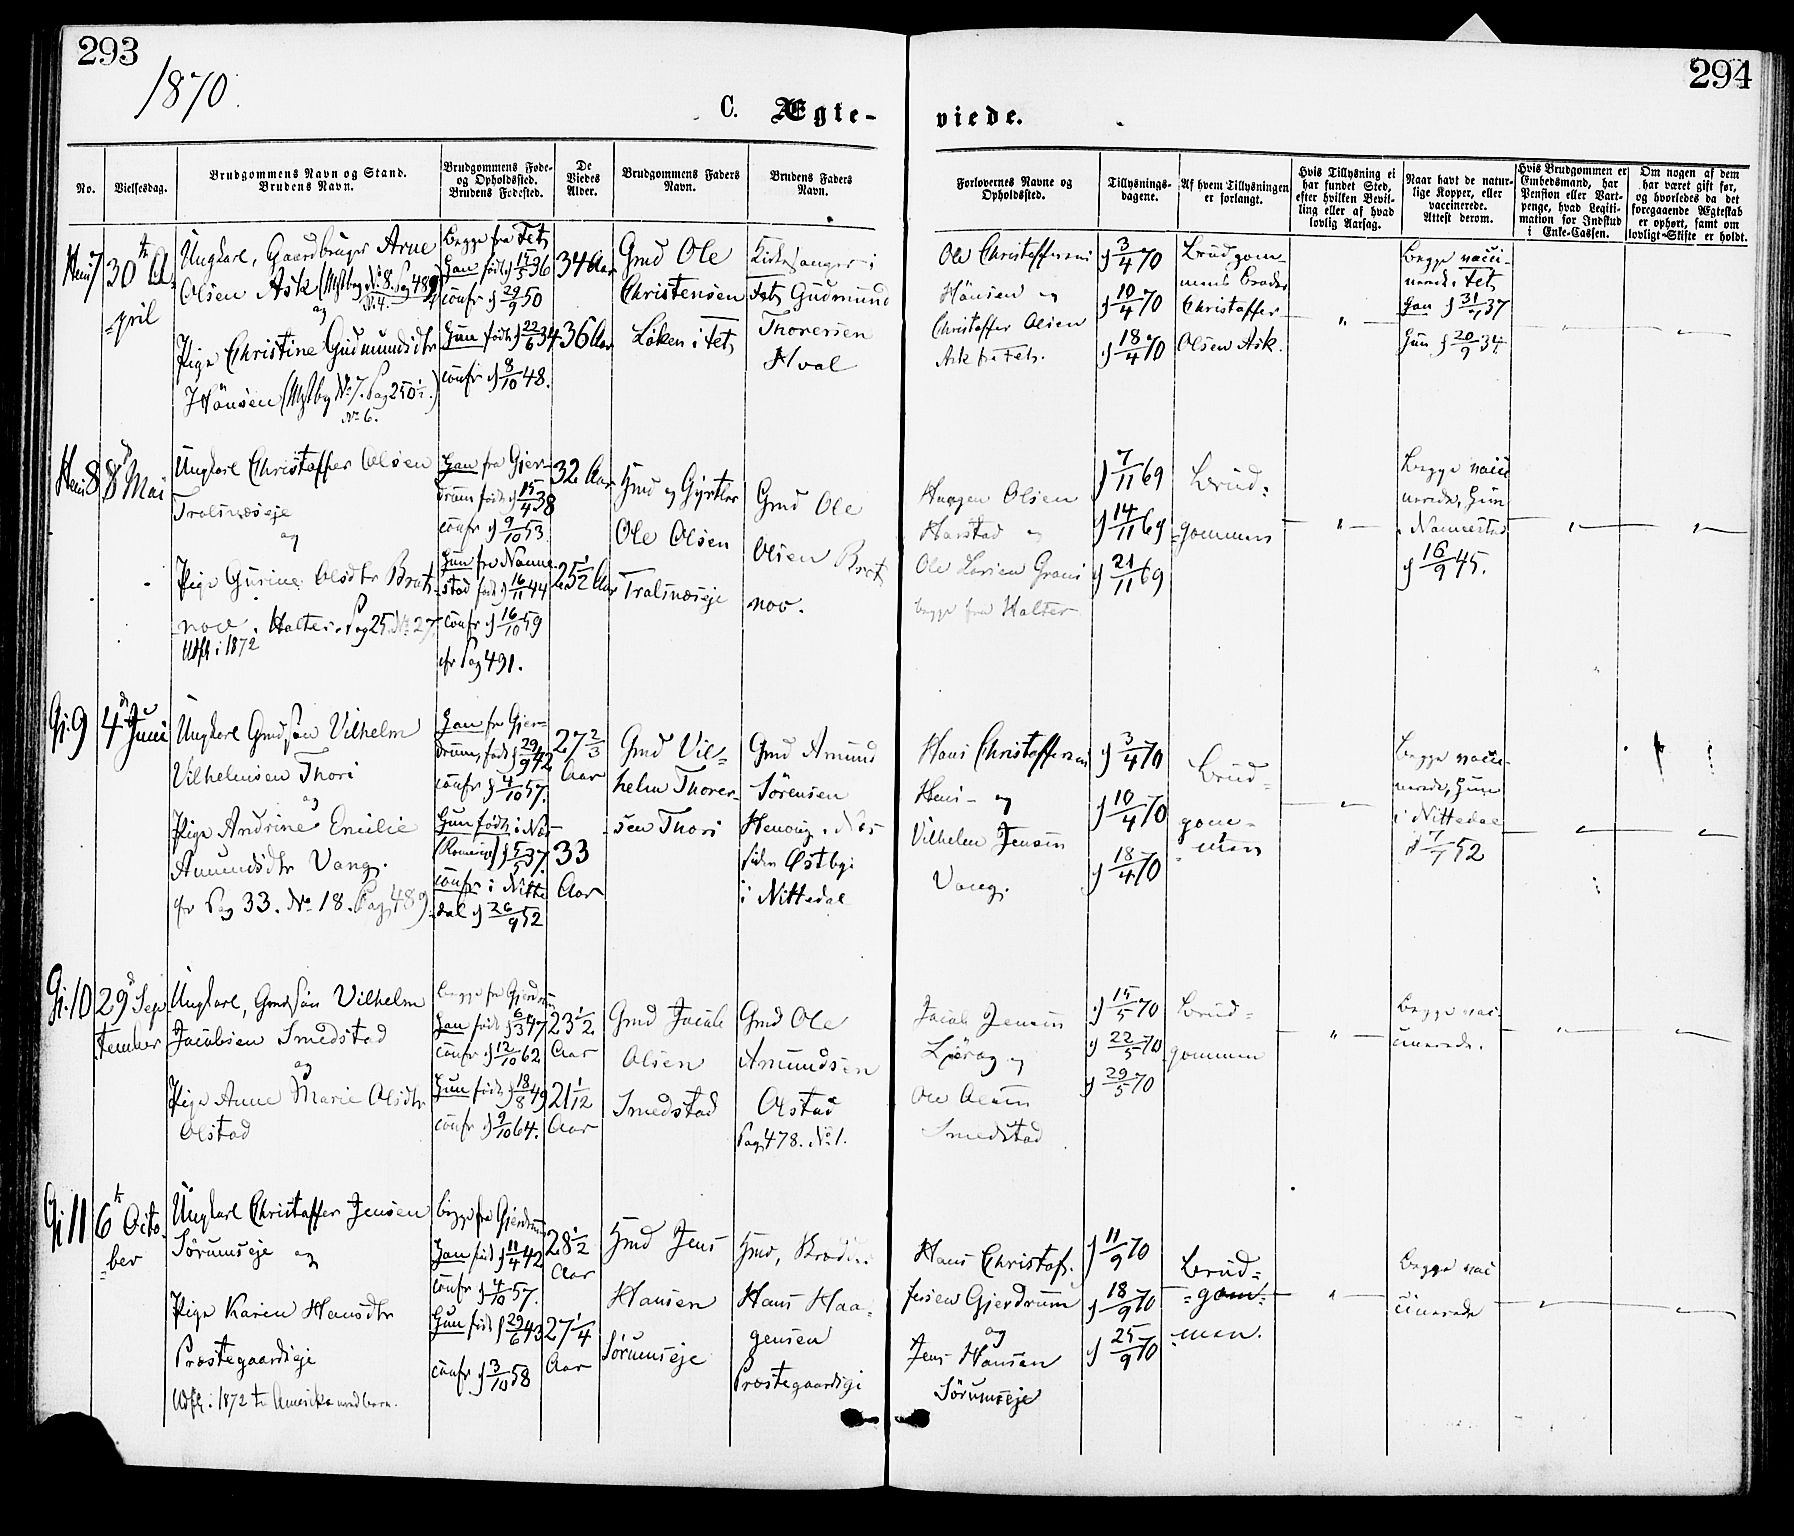 293
1870.
294
C. Ægte-
viede.
No.
Vielsesdag.
Brudgommens Navn og Stand.
Brudens Navn.
Brudgommens Føde-
og Opholdssted.
Brudens Fødested.
De
Viedes
Alder.
Brudgommens Faders
Navn.
Brudens Faders
Navn.
Forlovernes Navne og
Opholdssted.
Tillysnings-
dagene.
Af hvem Tillysningen
er forlangt.
Hvis Tillysning ei
har fundet Sted,
efter hvilken Bevil-
ling eller af hvad
lovlig Aarsag.
Naar havt de natur-
lige Kopper, eller
vaccinerede.
Attest derom.
Hvis Brudgommen er
Embedsmand, har
Pension eller Vart-
penge, hvad Legiti-
mation for Indskud
i Enke-Cassen.
Om nogen af dem
har været gift før,
og hvorledes da det
foregaaende Ægteskab
er ophørt, samt om
lovligt Skifte er holdt.
7
30 A-
pril
Ungkarl, Gaardbruger Arne
Olsen Ask
og
Pige Christine Gudmundsdtr
Hönsen
No. 6.
begge fra Fet,
Han født d 36
confr d 29/9 50
Hun født d 22/6 34
confr d 8/10 48.
34 Aar
36 Aar
Gmd Ole
Christensen
Löken i Fet,
Kirkesanger i
Fet, Gudmund
Thoresen
Hval
Ole Christoffersen
Hönsen og
Christoffer Olsen
Ask fra Fet.
d 3/4 70
d 10/4 70
d 18/4 70
Brudgom-
mens Broder
Christoffer
Olsen Ask.
Begge vacci-
nerede i Fet
Han d 31/ 37
Hun d 20/9 34.
8
8 Mai
Ungkarl Christoffer Olsen
Tralsnæseje
og
Pige Gurine Olsdtr Brat-
nov. Halter. Pag 25 No. 27
Udfl. i 1872
Han fra Gjer-
drum født d 15/4 38
confr d 9/10 53.
Hun fra Nanne-
stad født d 16/11 44
confr d 16/10 59
cfr Pag 491.
32 Aar
25 1/2 Aar
Hmd og Gjørtler
Ole Olsen
Tralsnæseje
Gmd Ole
Olsen Brat
nov.
Haagen Olsen
Harstad og
Ole Larsen
begge fra Halter
d 7/11 69
d 14/11 69
d 21/11 69
Brud-
gommen
Begge vacci
nerede, Hun
i Nannestad
d 16/9 45.
Gj. 9
4 Juni
Ungkarl Gmdsön Vilhelm
Vilhelmsen Thori
og
Pige Andrine Emilie
Amundsdtr Vang.
cfr Pag 33. No 18. Pag 489.
Han fra Gjer-
drum, født d 29/9 42
confr d 4/10 57.
Hun født i Næs
(Romerige) d 5/5 37.
confr i Nitte
dal d 26/9 52
27 2/3
Aar
33
Aar
Gmd Vil-
helm Thorer-
sen Thori
Gmd Amund
Sörensen
Henvig, Næs
siden Østbye
i Nittedal
Hans Christoffersen
Heni og
Vilhelm Jensen
Vang.
d 3/4 70
d 10/4 70
d 18/4 70
Brud-
gom-
men
Begge vacci-
nerede, Hun
i Nittedal
d 7/7 52
Gj. 10
29 Sep
tember
Ungkarl, Gmdsön Vilhelm
Jacobsen Smedstad
og
Pige Anne Marie Olsdtr
Olstad
begge fra Gjerdrum
Han født d 6/3 47
confr d 12/10 62
Hun født d 18/8 49
confr d 9/10 64.
23 1/2
Aar
21 1/12
Aar
Gmd Jacob
Olsen
Smedstad
Gmd Ole
Amundsen
Olstad
Pag 478. No 1.
Jacob Jensen
og
Ole Olsen
Smedstad
d 15/5 70
d 22/5 70
d 29/5 70
Brud-
gommen
Begge vac-
cinerede.
Gj 11
6 Octo-
ber
Ungkarl Christoffer Jensen
Sörumseje og
Pige Karen Hansdtr
Præstegaardseje
Udfl. i 1872 til Amerika med barn.
begge fra Gjerdrum
Han født d 11/4 42
confr d 4/10 57.
Hun født d 29/6 43
confr d 3/10 58
28 1/2
Aar
27 1/4
Aar
Hmd Jens
Hansen
Sörumseje
Hmd,
Hans Haa-
gensen
Præstegaardseje
Hans Christof-
fersen Gjerdrum
og
Jens Hansen
Sörumseje
d 11/9 70
d 18/9 70
d 25/9 70
Brud-
gom-
men.
Begge vac
cinerede